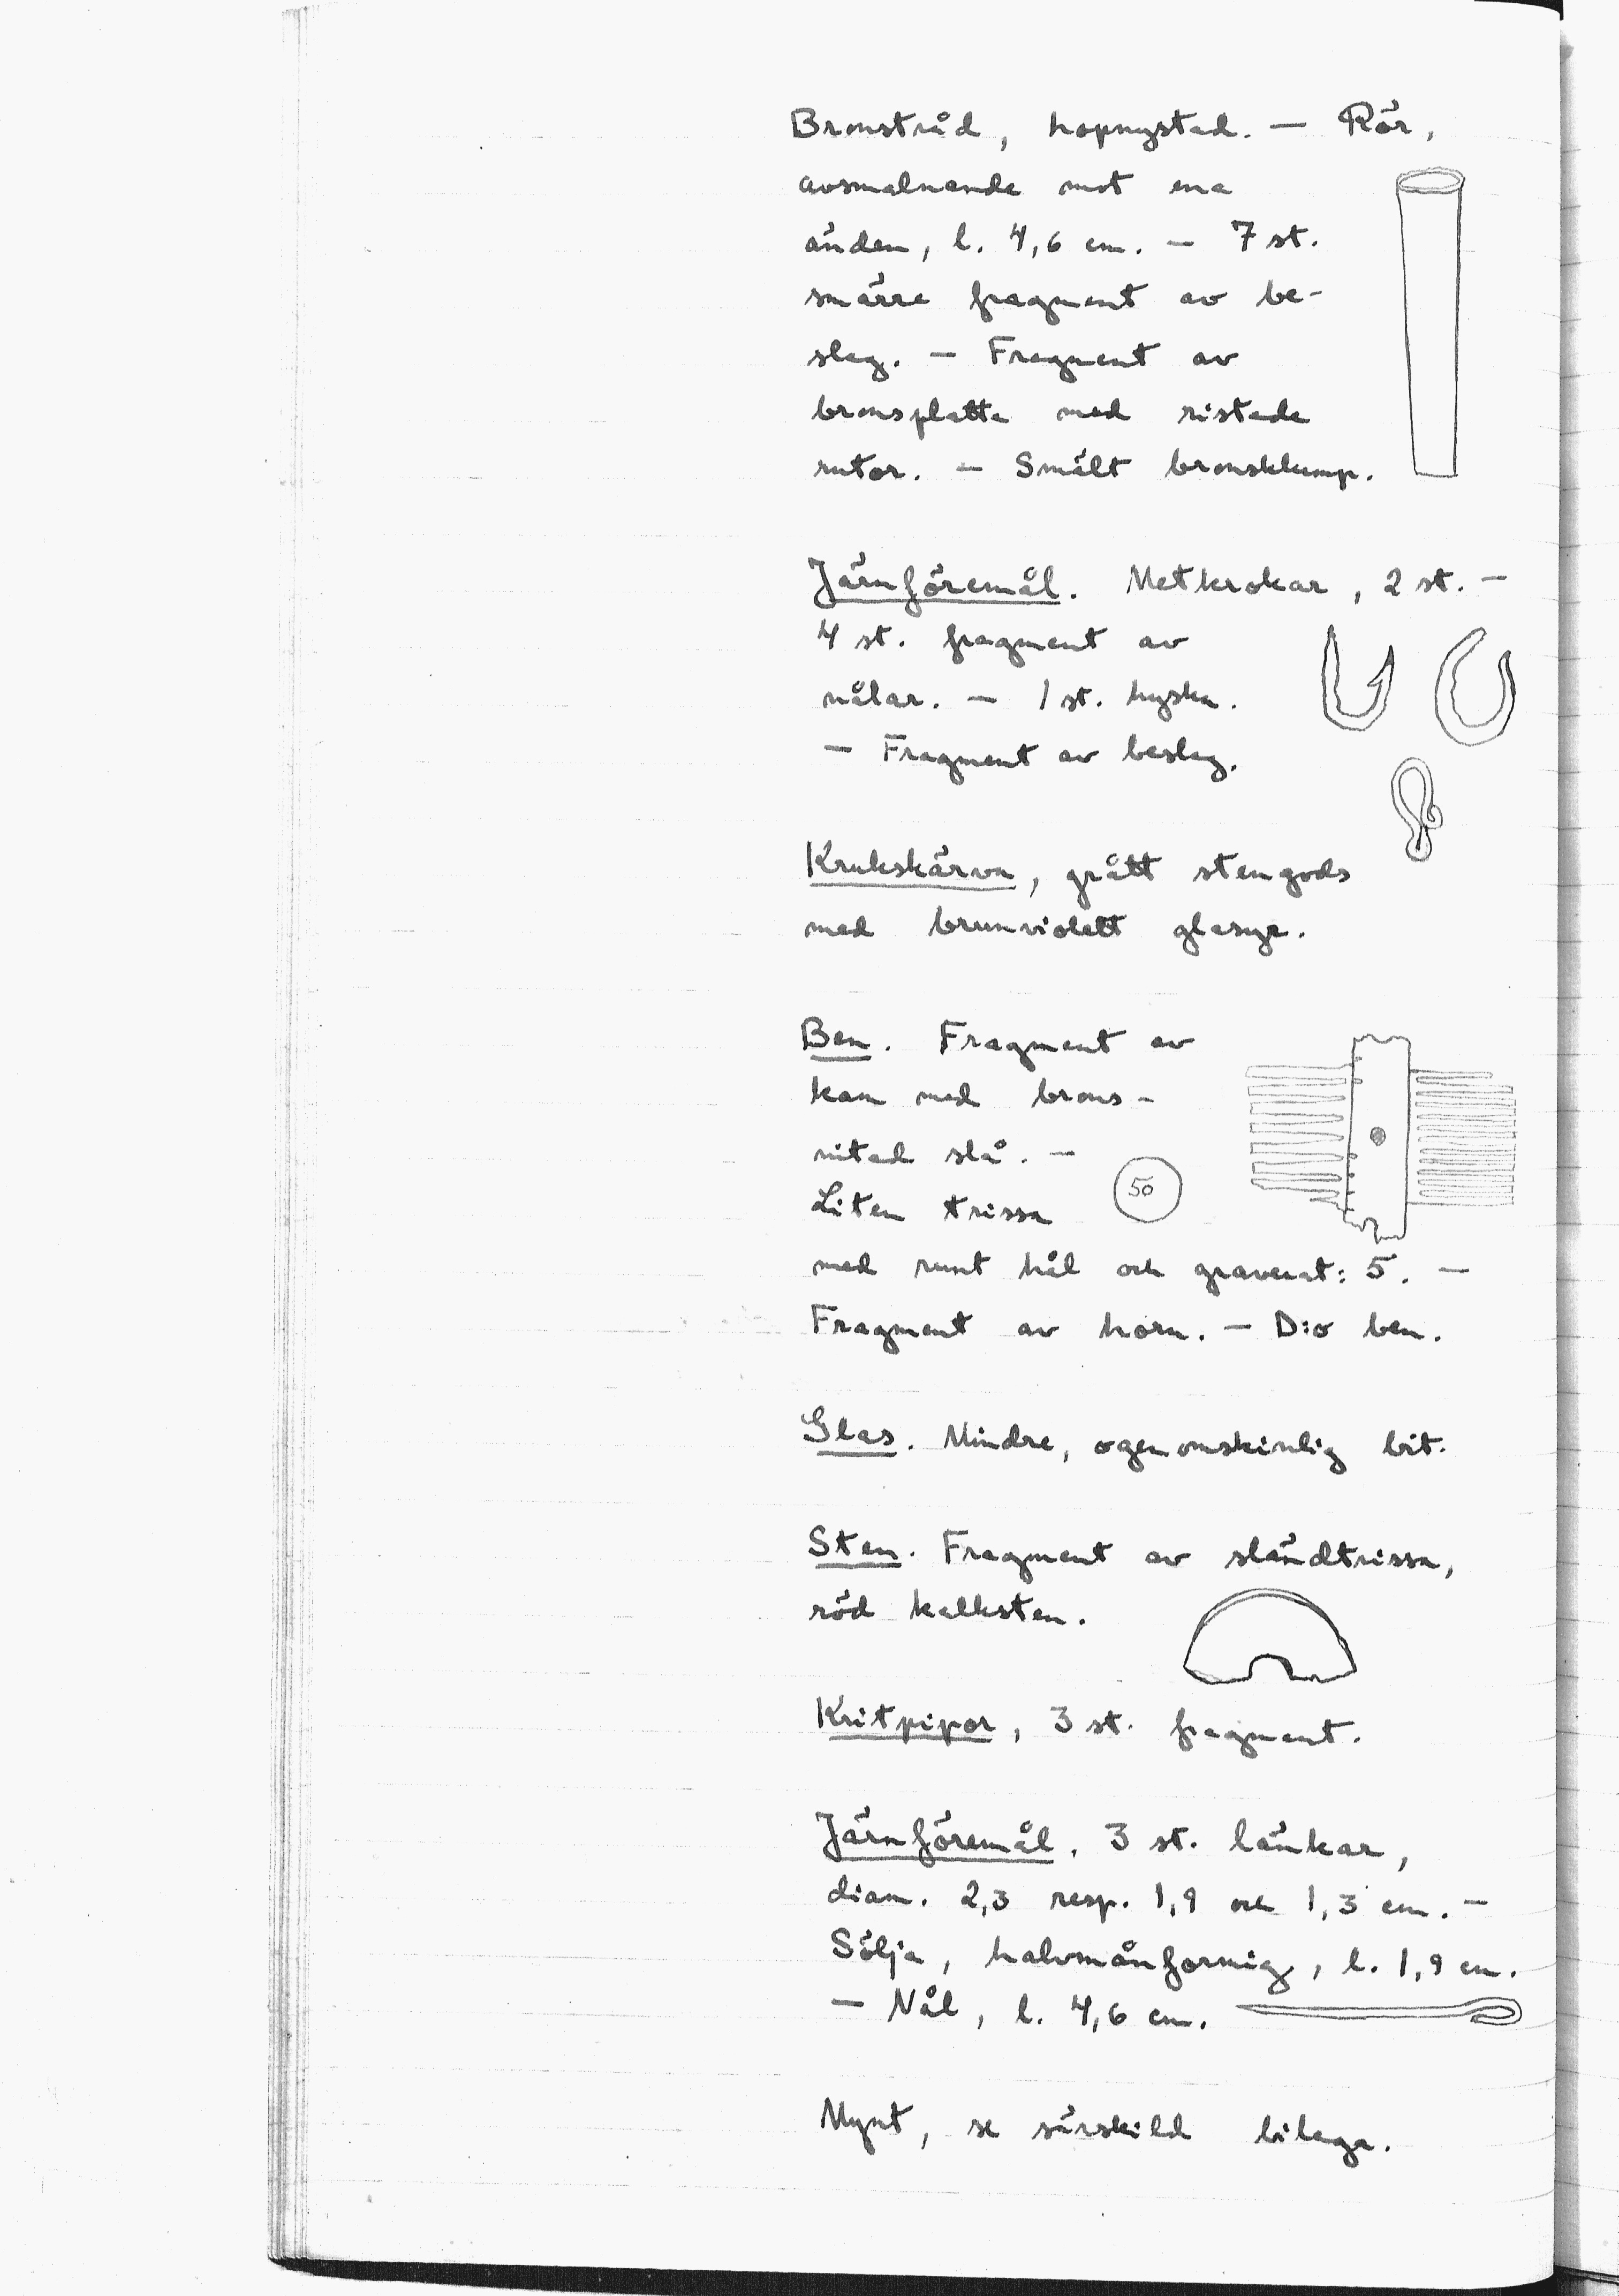 Bronstråd, hopnystad. — Rör,
avsmalnande mot ena
änden, l. 4,6 cm. — 7 st.
smärre fragment av be-
slag. — Fragment av
bronsplatta med ristade
rutor. — Smält bronsklump.
Järnföremål. Metkrokar, 2 st. —
4 st. fragment av
nålar. — 1 st. hyska.
— Fragment av beslag.
Krukskärva, grått stengods
med brunviolett glasyr.
Ben. Fragment av
kam med brons-
nitad slå. —
Liten trissa
50
med runt hål och graverat: 5. —
Fragment av horn. — D:o ben.
Glas. Mindre, ogenomskinlig bit.
Sten. Fragment av sländtrissa,
röd kalksten.
Kritpipor, 3 st. fragment.
Järnföremål. 3 st. länkar,
diam. 2,3 resp. 1,9 och 1,3 cm. —
Sölja, halvmånformig, l. 1,9 cm.
— Nål, l. 4,6 cm.
Mynt, se särskild bilaga.